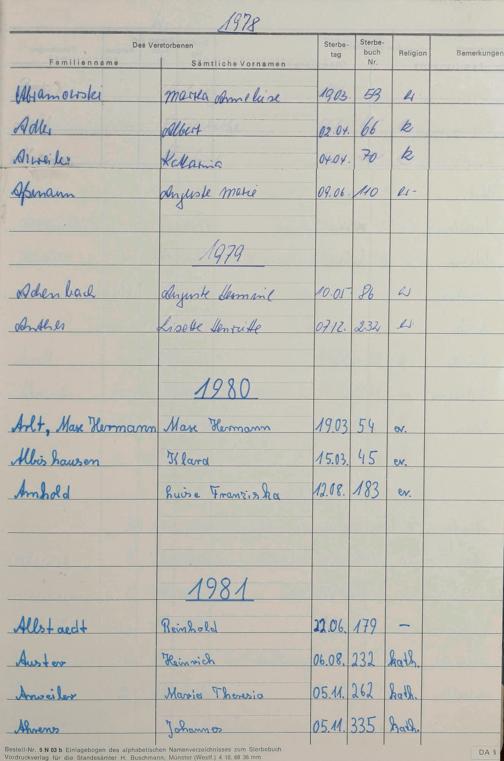 1978
Des Verstorbenen Sterbe- Sterbe- Religion Bemerkungen
Familienname Sämtliche Vornamen tag buch Nr.
Abramowski Martha Anneliese 19.03. 59 ev
Adler Albert 02.04. 66 k
Anweiler Katharina 04.04. 70 k
Aßmann Auguste Marie 09.06. 110 ev-
1979
Achenbach Auguste Hermine 10.05 86 ev
Anthes Lisette Henriette 07.12. 232 ev
1980
Arlt, Max Hermann Max Hermann 19.03 54 ev.
Albishausen Klara 15.03. 45 ev.
Arnhold Luise Franziska 12.08. 183 ev.
1981
Allstaedt Reinhold 22.06. 179 —
Auster Heinrich 06.08. 232 kath.
Anweiler Maria Theresia 05.11. 262 kath.
Ahrens Johannes 05.11. 335 kath.
Bestell-Nr. S N 03 b Einlagebogen des alphabetischen Namenverzeichnisses zum Sterbebuch
Vordruckverlag für die Standesämter H. Buschmann, Münster (Westf.)
DA 5